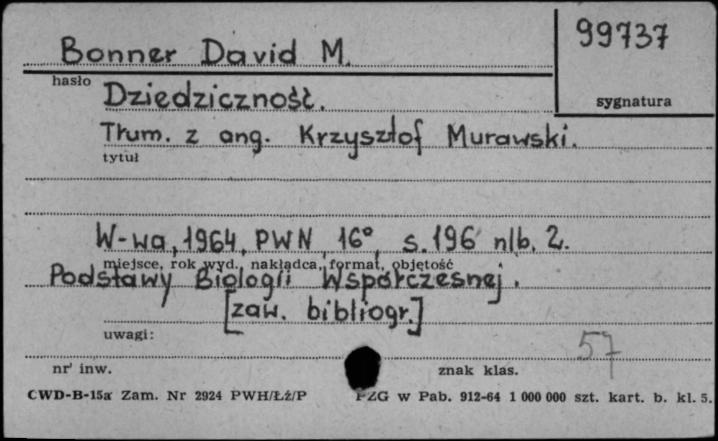 Bonner David M.
99737
hasło
sygnatura
Dziedziczność.
Tłum. z ang. Krzysztof Murawski.
tytuł
W-wa, 1964, PWN, 16°, s. 196 nlb. 2.
miejsce, rok wyd., nakładca, format, objętość
Podstawy Biologii Współczesnej.
[zaw. bibliogr.]
uwagi:
57
nr inw.
znak klas.
CWD-B-15a Zam. Nr 2924 PWH/Łż/P
PZG w Pab. 912-64 1 000 000 szt. kart. b. kl. 5.